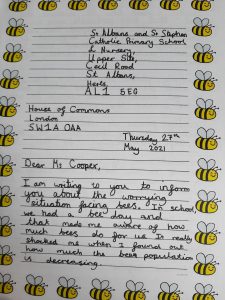 St Albans and St Stephen
Catholic Primary School
& Nursery,
Upper Site,
Cecil Road
St Albans,
Herts.
AL1 5EG
House of Commons
London
SW1A OAA
Thursday 27th
May 2021
Dear Ms Cooper,
I am writing to you to inform
you about the worrying
situation facing bees. In school,
we had a bee day and
that made me aware of how
much bees do for us. I really
shocked me when I found out
how much the bee population
is decreasing.